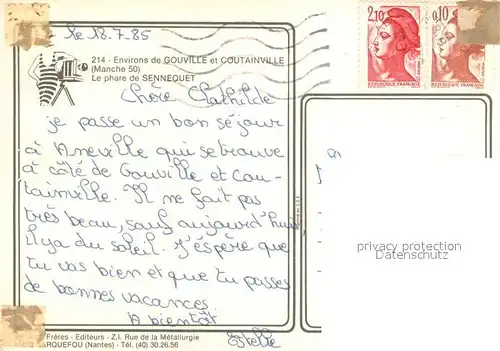 le 18.7.85
2,10
0,10
RÉPUBLIQUE FRANÇAISE
RÉPUBLIQUE FRANÇAISE
214 - Environs de GOUVILLE et COUTAINVILLE
(Manche 50)
Le phare de SENNEQUET
Chère Clathilde
je passe un bon séjour
à Aneville qui se trouve
à côté de Gouville et Cou-
tainville. Il ne fait pas
très beau, sauf aujourd'hui
il y a du soleil. J'espère que
tu vas bien et que tu passes
de bonnes vacances.
A bientôt
Estelle
privacy protection
Datenschutz
Frères - Editeurs - Z.I. Rue de la Métallurgie
ARQUEFOU (Nantes) - Tél. (40) 30.26.56